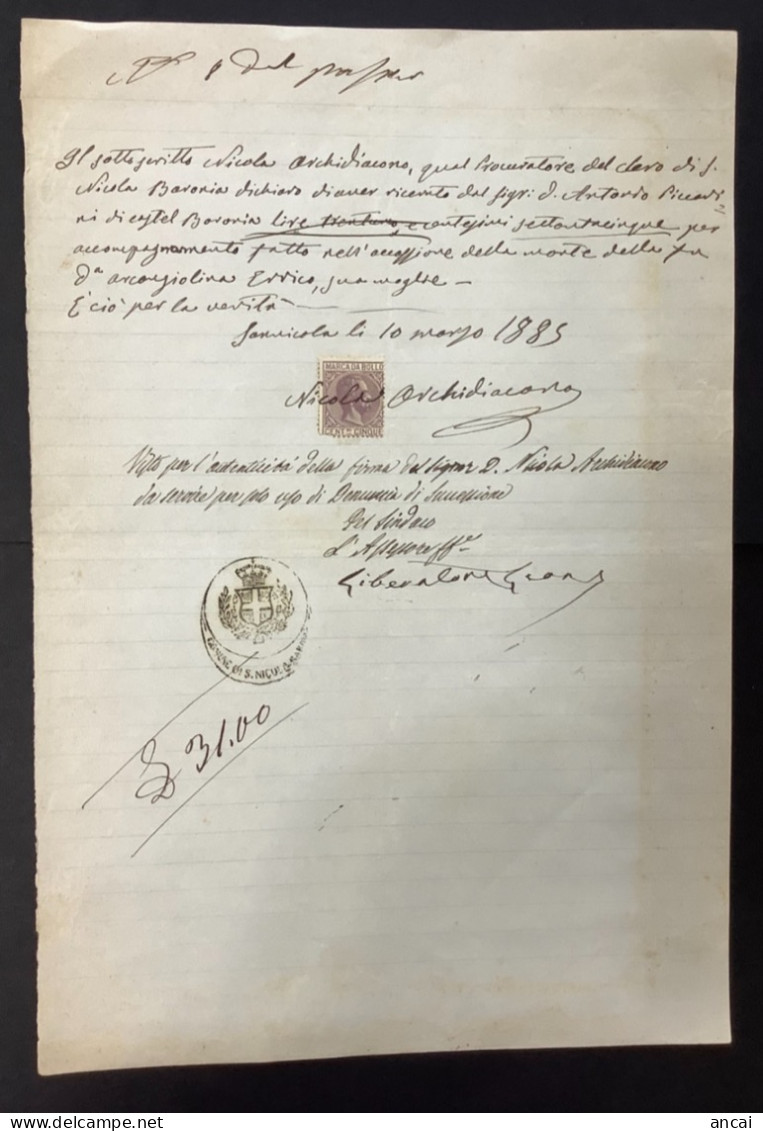 del
Il sottoscritto Nicola Archidiacono, qual Procuratore del clero di S.
Nicola Baronia dichiaro di aver ricevuto dal sigr. D. Antonio Piccari=
ni di castel Baronia lire trentuno, e centesimi settantacinque per
accompagnamento fatto nell'occassione della morte della fu
Da. arcangiolina Errico, sua moglie –
E ciò per la verità
Sannicola li 10 marzo 1885
MARCA DA BOLLO
Nicola Archidiacono
CENT. CINQUE
Visto per l'autenticità della firma del Signor D. Nicola Archidiacono
da servire per solo uso di Denuncia di Successione
Pel Sindaco
L'Assessore ff.e
Liberatore
COMUNE DI S. NICOLA BARONIA
£ 31.00
ancai